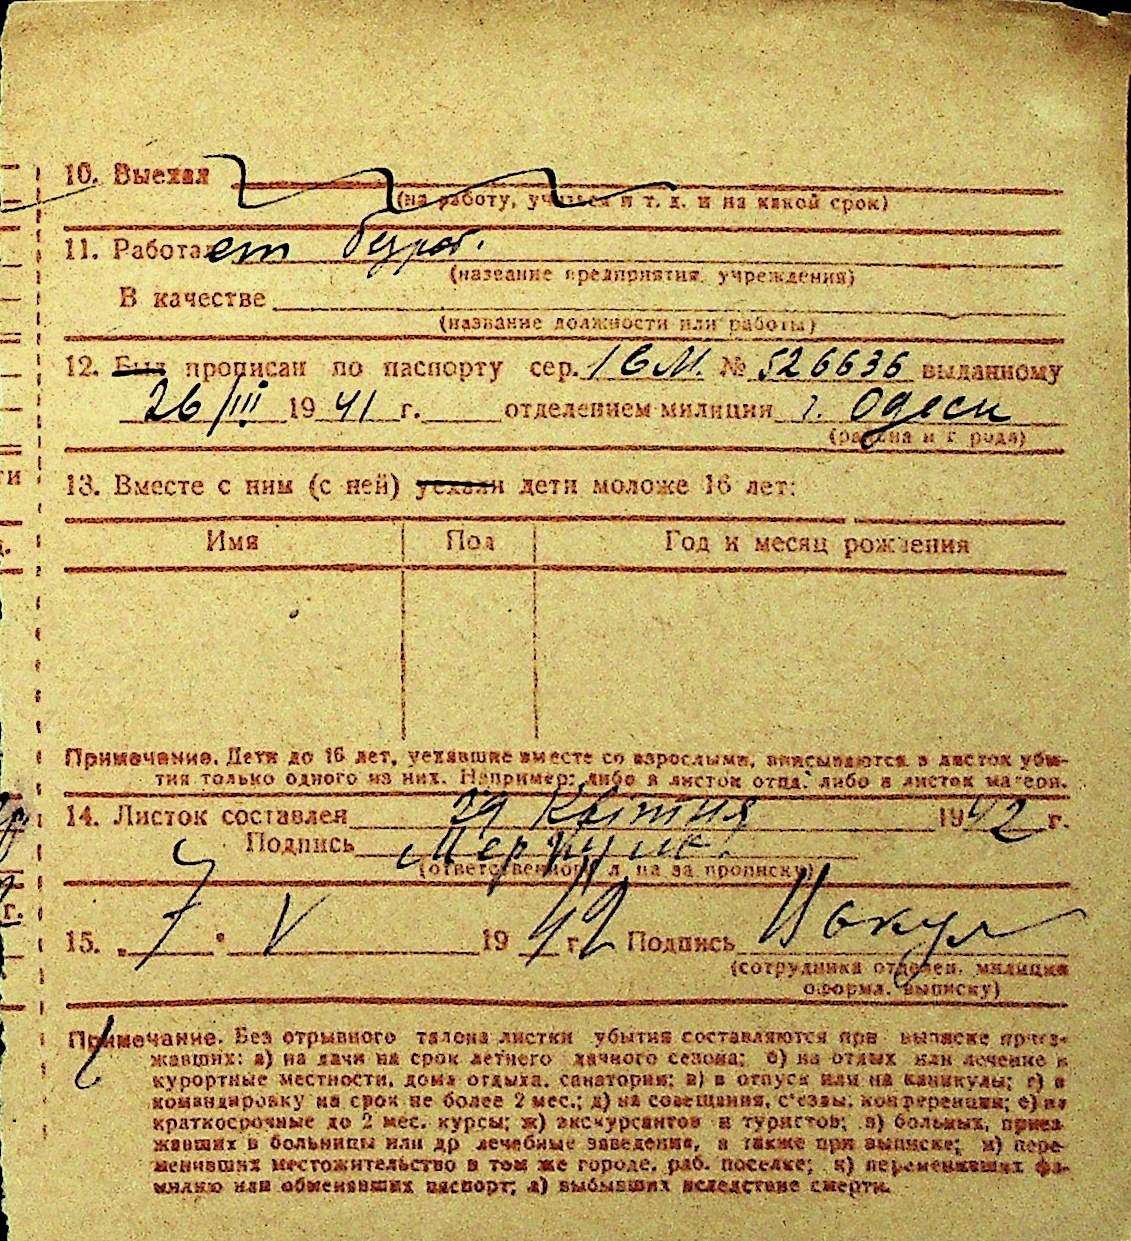 10. Выехал
(на работу, учиться и т. д. и на какой срок)
11. Работает безраб.
(название предприятия, учреждения)
В качестве
(название должности или работы)
12. Был прописан по паспорту сер. № 526636 выданному
26/III 1941 г. отделением милиции г. Одеси
(района и города)
13. Вместе с ним (с ней) уехали дети моложе 16 лет:
Имя Пол Год и месяц рождения
Примечание. Дети до 16 лет, уехавшие вместе со взрослыми, вписываются в листок убы-
тия только одного из них. Например: либо в листок отца, либо в листок матери.
14. Листок составлен 29 Квітня 1942 г.
Подпись
(ответственного лица за прописку)
15. „7" V 1942 г. Подпись
(сотрудника отделен. милиции
оформл. выписку)
Примечание. Без отрывного талона листки убытия составляются при выписке приез-
жавших: а) на дачи на срок летнего дачного сезона; б) на отдых или лечение в
курортные местности, дома отдыха, санатории; в) в отпуск или на каникулы; г) в
командировку на срок не более 2 мес.; д) на совещания, с'езды, конференции; е) на
краткосрочные до 2 мес. курсы; ж) экскурсантов и туристов; з) больных, приез-
жавших в больницы или др лечебные заведения, а также при выписке; и) пере-
менивших местожительство в том же городе, раб. поселке; к) переменивших фа-
милию или обменявших паспорт; л) выбывших вследствие смерти.